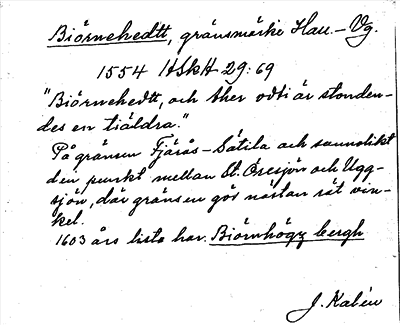 Biörnehedtt, gränsmärke Hall.–Vg.
1554 HSkH 29:69
"Biörnehedtt, och ther odti är stonden-
des en tiäldra."
På gränsen Fjärås–Sätila och sannolikt
den punkt mellan St. Öresjön och Ugg-
sjön, där gränsen gör nästan rät vin-
kel.
1603 års lista har. Biörnhögz bergh
J. Kalén